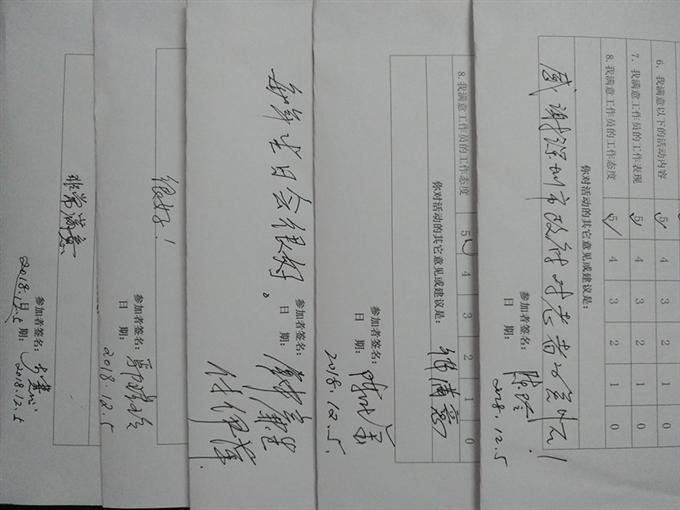 6、我满意以下的活动内容 5 4 3 2 1 0
7、我满意工作员的工作表现 5 4 3 2 1 0
8、我满意工作员的工作态度 5 4 3 2 1 0
你对活动的其它意见或建议是：
感谢深圳市政府对老者的关怀！
参加者签名：
日 期：
2018.12.5
8、我满意工作员的工作态度 5 4 3 2 1 0
你对活动的其它意见或建议是：
满意
参加者签名：
日 期：
2018.12.5.
每年生日会很好。
很好！
参加者签名：
日 期：
2018.12.5
非常满意
参加者签名：
日 期：
2018.12.5
2018.12.5